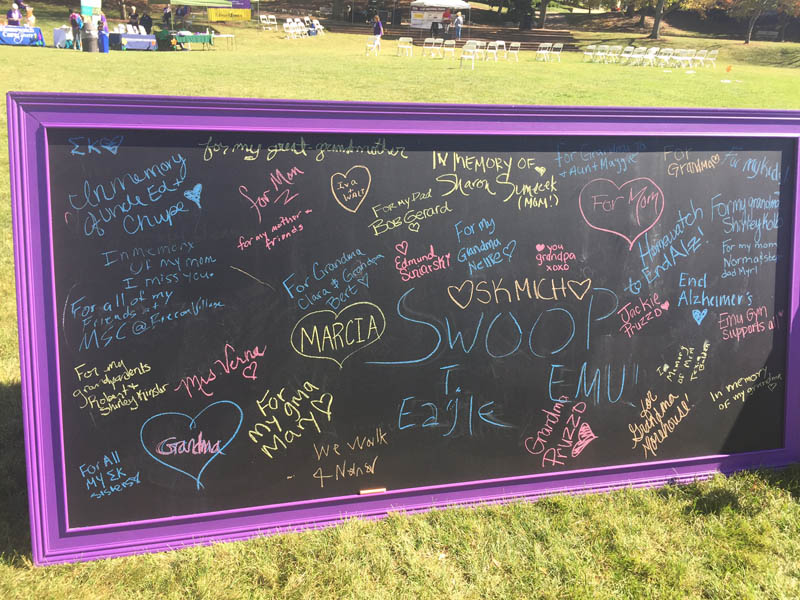 ΣK
for my great-grandmother
In Memory
of Uncle Ed +
for Mom
Iva
WALT
For my Dad
Bob Gerard
IN MEMORY OF
Sharon
(MOM!)
For Grandma Jo
+ Aunt Maggie
For
Grandma
For my kids!
For Mom
for my mother +
friends
In memory
of my mom
I miss you.
For Grandma
Clara & Grandpa
Bert
Edmund
For my
Grandma
Nellie
you
grandpa
xoxo
Homewatch
to End Alz!
For my grandma
For my mom
Norma
dad Myrl
For all of my
friends at
MSC @
SK MICH
MARCIA
SWOOP
Jackie
Pruzzo
End
Alzheimer's
Emu Gym
Supports all
For my
grandparents
Robert +
Shirley
Mrs Verna
For
my gma
Mary
T.
Eagle
EMU!!
In
Memory
of
In memory
of my grandma
for
Grandma
Morehouse!
Grandma
Grandma
Pruzzo
We Walk
4 Nana
For All
MY ΣK
sisters